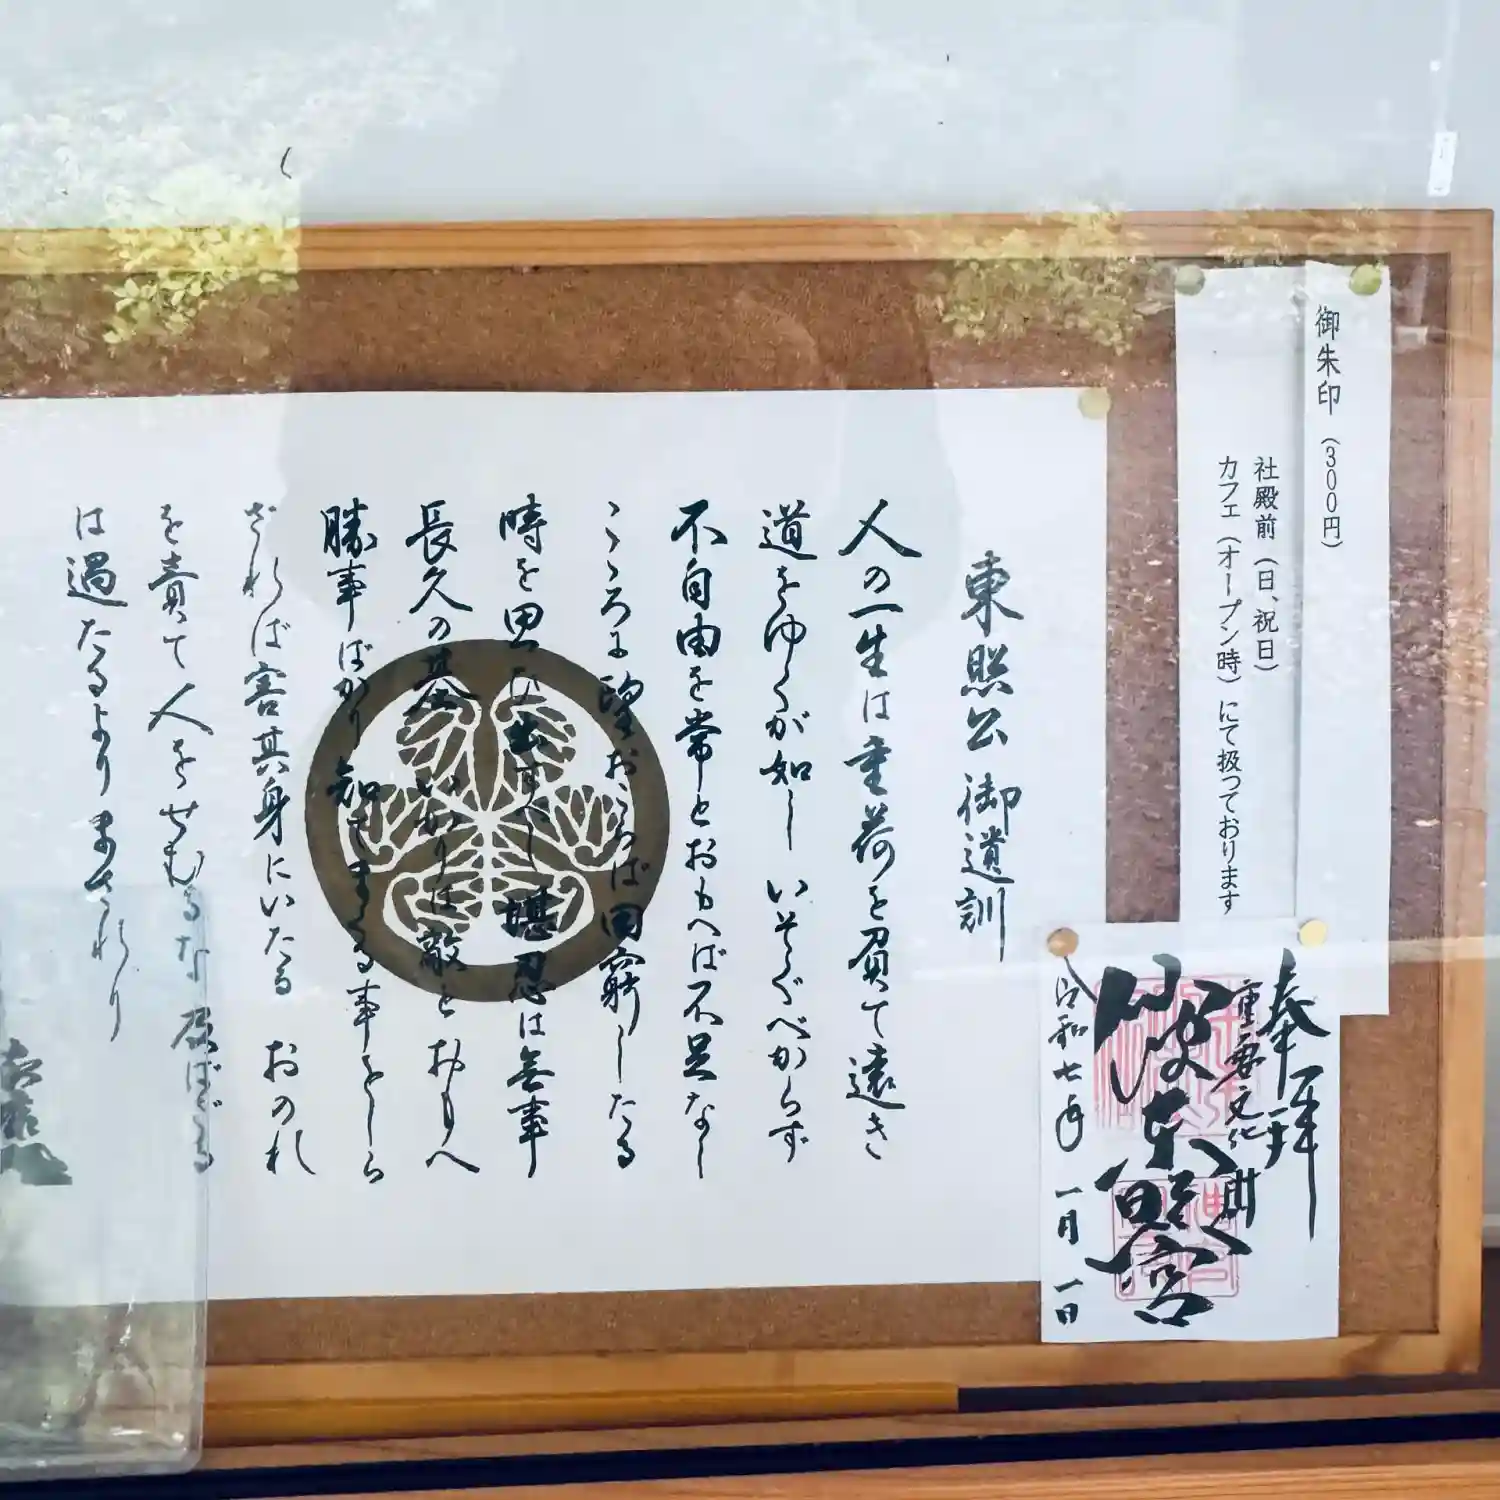 御朱印（300円）
社殿前（日、祝日）
カフェ（オープン時）にて扱っております
奉拝
重要文化財
東照宮
令和七年 一月 一日
東照公御遺訓
人の一生は重荷を負て遠き
道をゆくが如し いそぐべからず
不自由を常とおもへば不足なし
こゝろに望おこらば困窮したる
時を思ひ出すべし 堪忍は無事
長久の基 いかりは敵とおもへ
勝事ばかり知てまくる事をしら
ざれば害其身にいたる おのれ
を責て人をせむるな 及ばざる
は過たるよりまされり